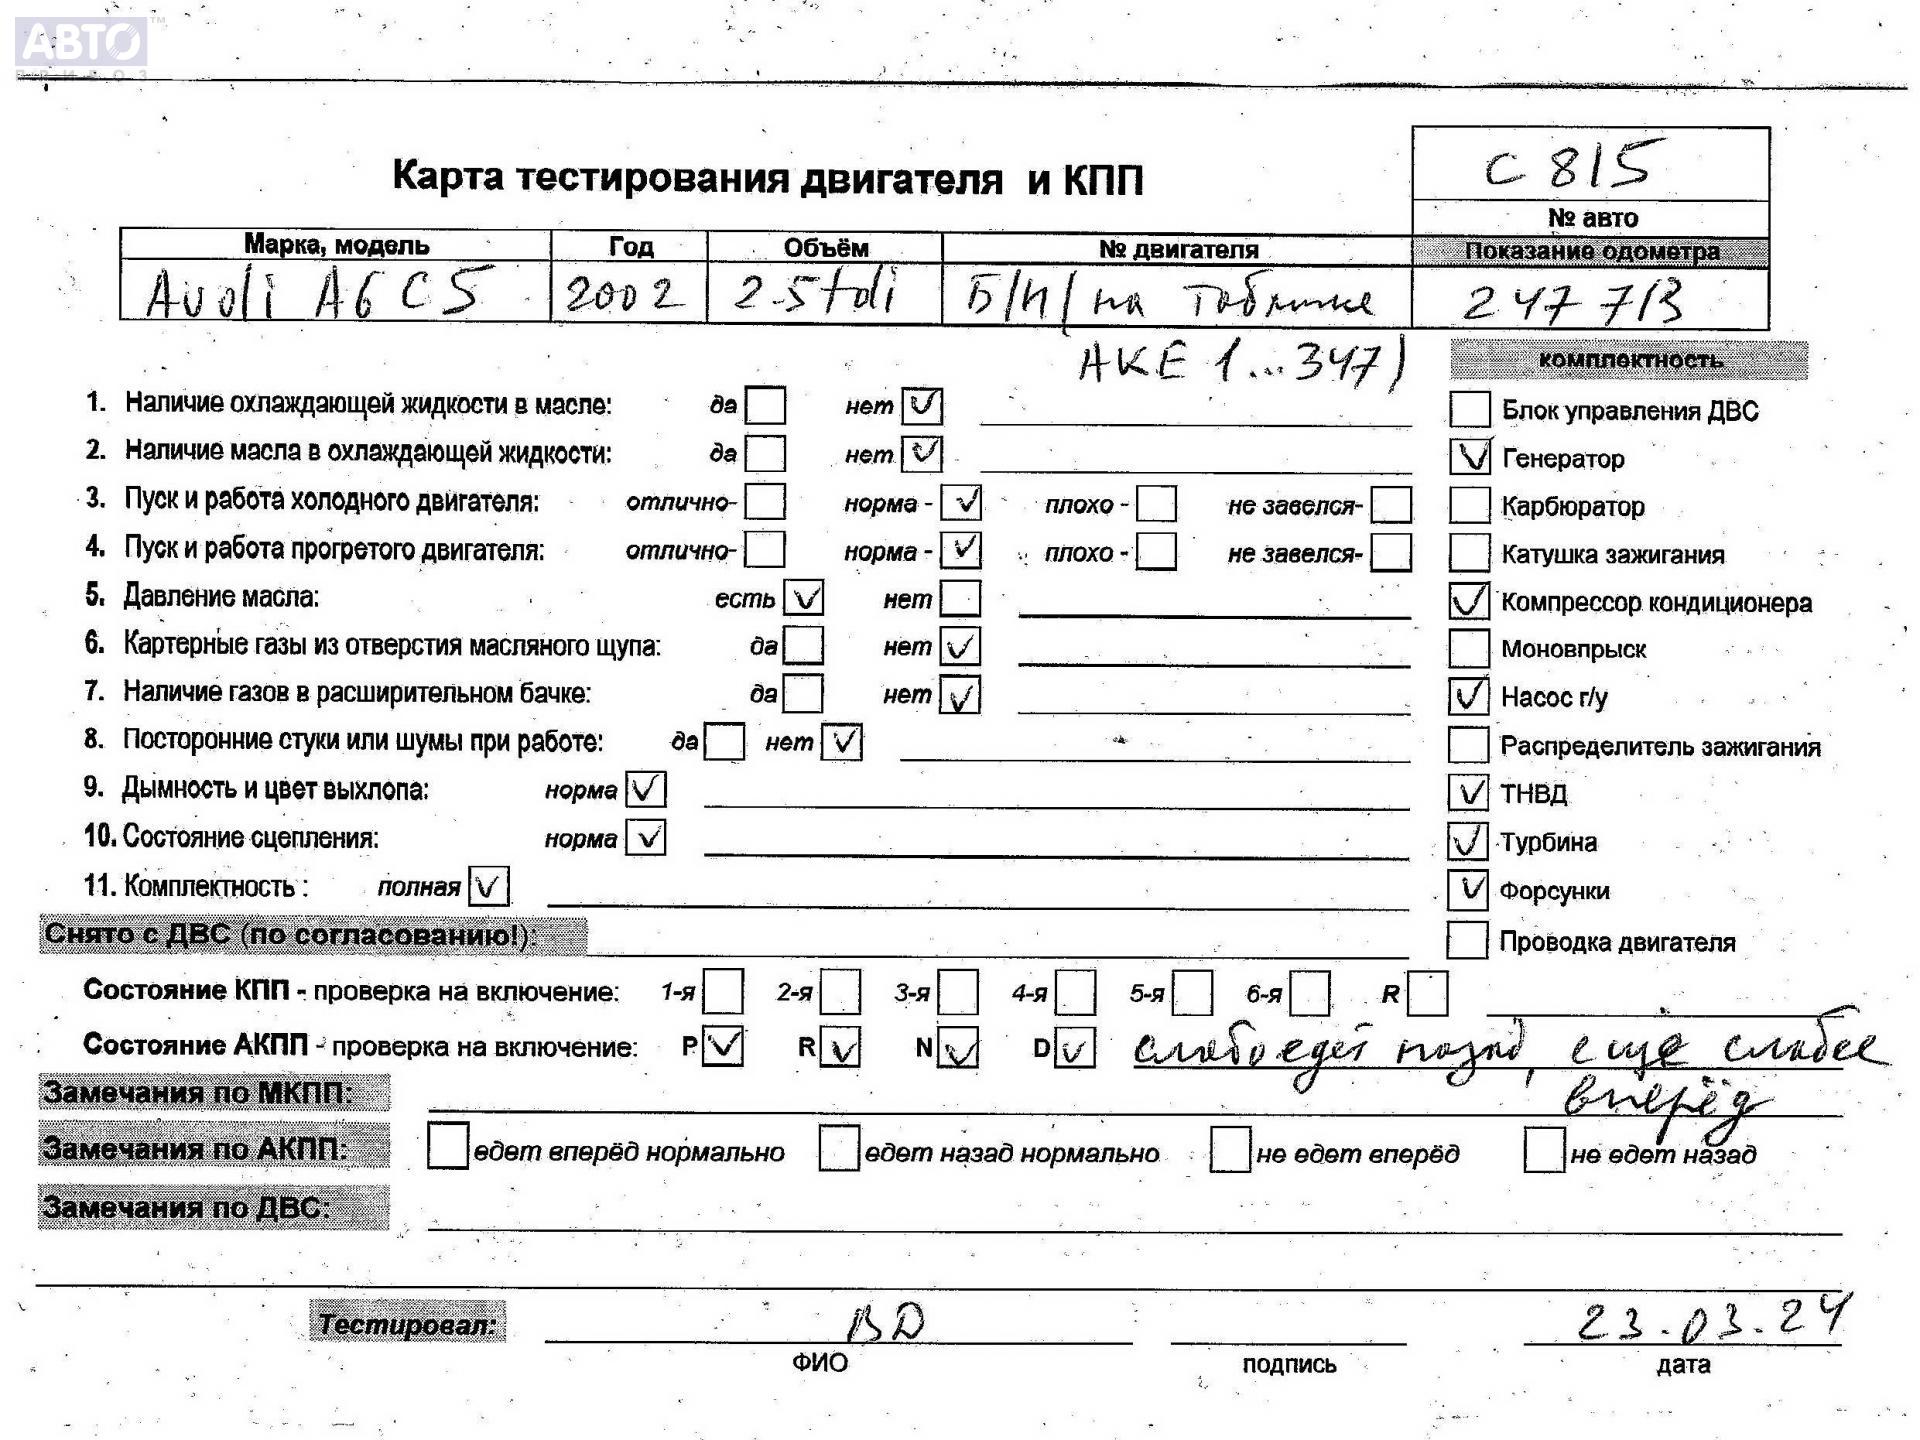 АВТО™
ПРИВОЗ
С 815
Карта тестирования двигателя и КПП
№ авто
Марка, модель Год Объём № двигателя Показание одометра
Audi A6 C5 2002 2.5tdi Б/Н (на табличке 247 713
AKE 1...347)
комплектность
1. Наличие охлаждающей жидкости в масле: да нет ✓
Блок управления ДВС
2. Наличие масла в охлаждающей жидкости: да нет ✓
✓ Генератор
3. Пуск и работа холодного двигателя: отлично- норма - ✓ плохо - не завелся-
Карбюратор
4. Пуск и работа прогретого двигателя: отлично- норма - ✓ плохо - не завелся-
Катушка зажигания
5. Давление масла: есть ✓ нет
✓ Компрессор кондиционера
6. Картерные газы из отверстия масляного щупа: да нет ✓
Моновпрыск
7. Наличие газов в расширительном бачке: да нет ✓
✓ Насос г/у
8. Посторонние стуки или шумы при работе: да нет ✓
Распределитель зажигания
9. Дымность и цвет выхлопа: норма ✓
✓ ТНВД
10. Состояние сцепления: норма ✓
✓ Турбина
11. Комплектность : полная ✓
✓ Форсунки
Снято с ДВС (по согласованию!):
Проводка двигателя
Состояние КПП - проверка на включение: 1-я 2-я 3-я 4-я 5-я 6-я R
Состояние АКПП - проверка на включение: P ✓ R ✓ N ✓ D ✓ слабо едет назад, ещё слабее
вперёд
Замечания по МКПП:
Замечания по АКПП: едет вперёд нормально едет назад нормально не едет вперёд не едет назад
Замечания по ДВС:
Тестировал: ВД 23.03.24
ФИО подпись дата